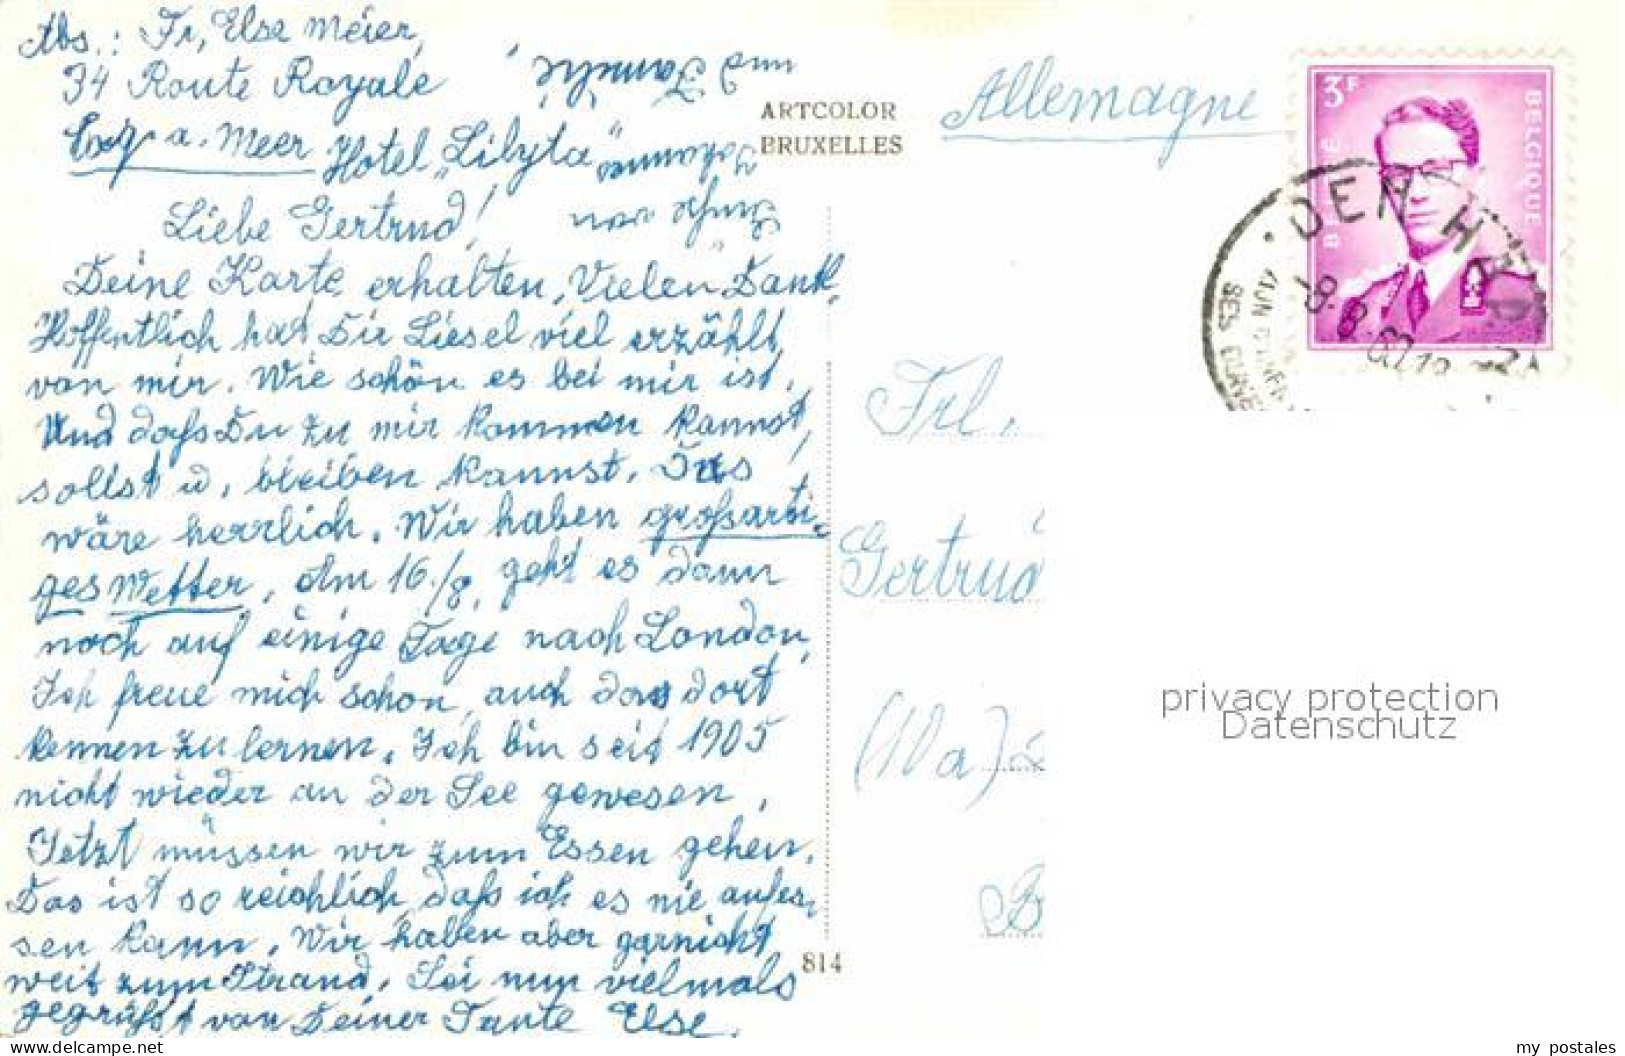 Abs.: Fr, Else Meier,
34 Route Royale
a. Meer Hotel „Libyta"
und Familie
Johanna
Gruß von
ARTCOLOR
BRUXELLES
Allemagne
3F
BELGIQUE
BELGIË
DEN H
Liebe Gertrud!
Deine Karte erhalten, Vielen Dank,
Hoffentlich hat Dir Liesel viel erzählt
von mir. Wie schön es bei mir ist,
Und daß Du zu mir kommen kannst,
sollst u. bleiben kannst. Das
wäre herrlich. Wir haben großarti-
ges Wetter, Am 16./8, geht es dann
noch auf einige Tage nach London,
Ich freue mich schon, auch das dort
kennen zu lernen. Ich bin seit 1905
nicht wieder an der See gewesen,
Jetzt müssen wir zum Essen gehen.
Das ist so reichlich, daß ich es nie aufes-
sen kann. Wir haben aber garnicht
weit zum Strand. Sei nun vielmals
gegrüßt von Deiner Tante Else.
Frl.
Gertrud
814
privacy protection
Datenschutz
www.delcampe.net
my_postales